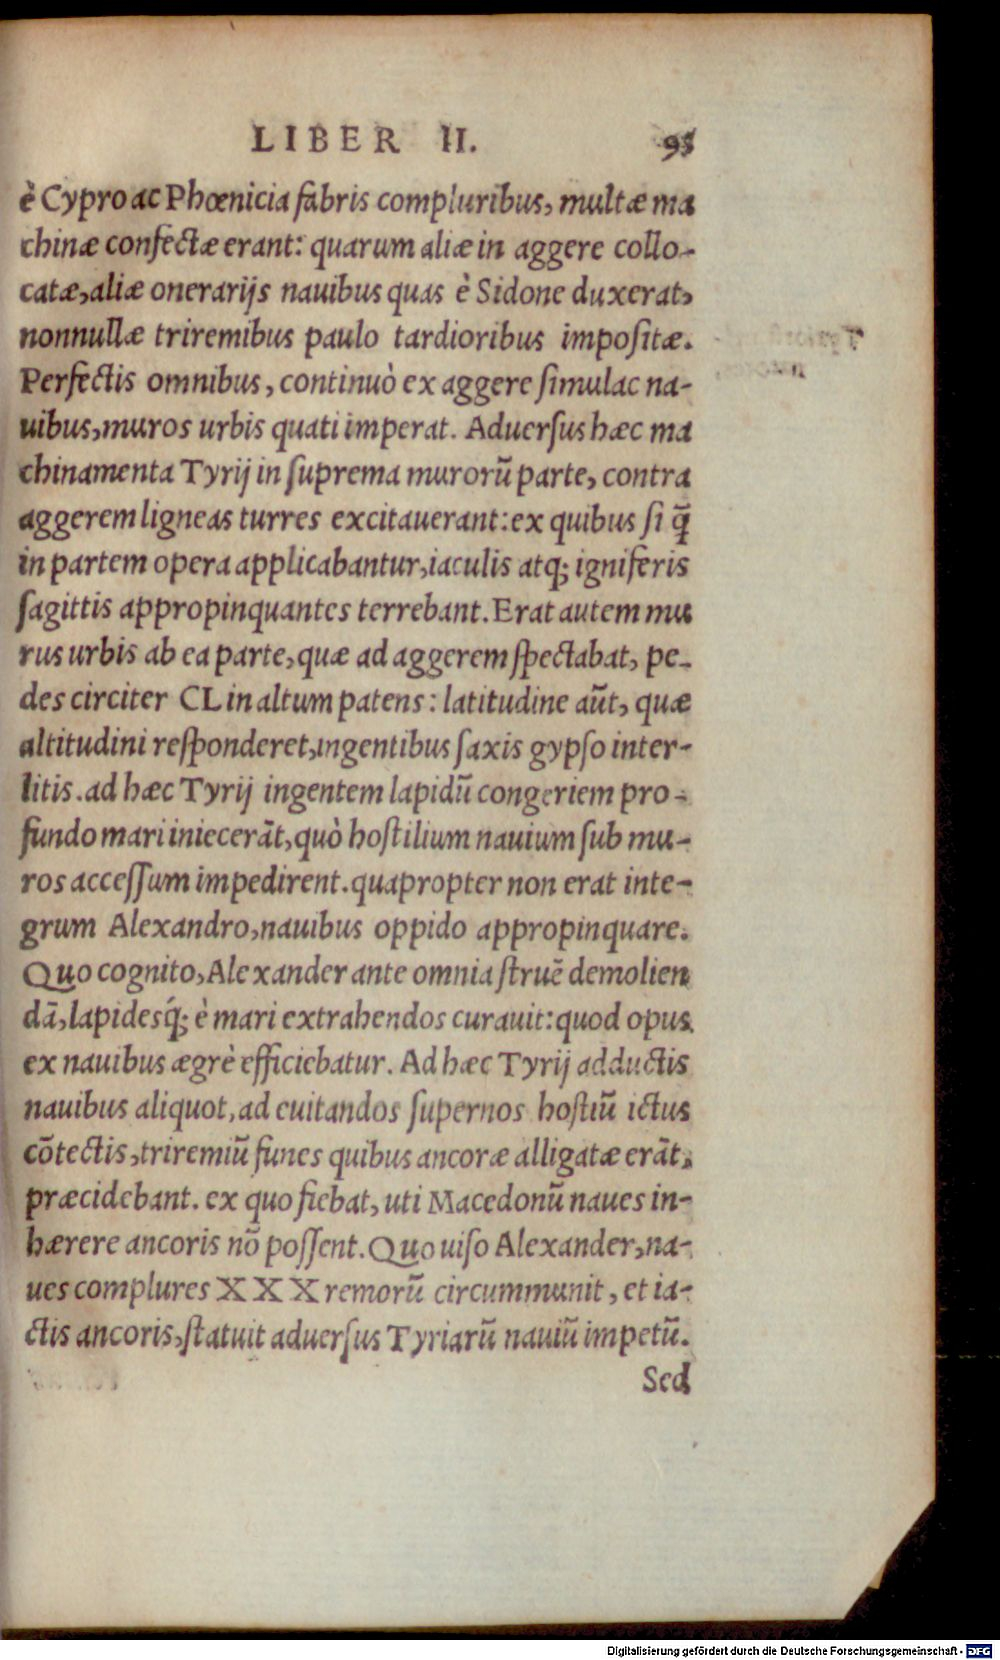 LIBER II. 95
è Cypro ac Phœnicia fabris compluribus, multæ ma
chinæ confectæ erant: quarum aliæ in aggere collo-
catæ, aliæ onerarijs nauibus quas è Sidone duxerat,
nonnullæ triremibus paulo tardioribus impositæ.
Perfectis omnibus, continuò ex aggere simulac na-
uibus, muros urbis quati imperat. Aduersus hæc ma
chinamenta Tyrij in suprema murorū parte, contra
aggerem ligneas turres excitauerant: ex quibus si q̄
in partem opera applicabantur, iaculis atq; igniferis
sagittis appropinquantes terrebant. Erat autem mu
rus urbis ab ea parte, quæ ad aggerem spectabat, pe-
des circiter CL in altum patens: latitudine aūt, quæ
altitudini responderet, ingentibus saxis gypso inter-
litis. ad hæc Tyrij ingentem lapidū congeriem pro-
fundo mari iniecerāt, quò hostilium nauium sub mu-
ros accessum impedirent. quapropter non erat inte-
grum Alexandro, nauibus oppido appropinquare.
Quo cognito, Alexander ante omnia struē demolien
dā, lapidesq́; è mari extrahendos curauit: quod opus
ex nauibus ægrè efficiebatur. Ad hæc Tyrij adductis
nauibus aliquot, ad euitandos supernos hostiū ictus
cōtectis, triremiū funes quibus ancoræ alligatæ erāt,
præcidebant. ex quo fiebat, uti Macedonū naues in-
hærere ancoris nō possent. Quo uiso Alexander, na-
ues complures XXX remorū circummunit, et ia-
ctis ancoris, statuit aduersus Tyriarū nauiū impetū.
Sed
Digitalisierung gefördert durch die Deutsche Forschungsgemeinschaft - DFG